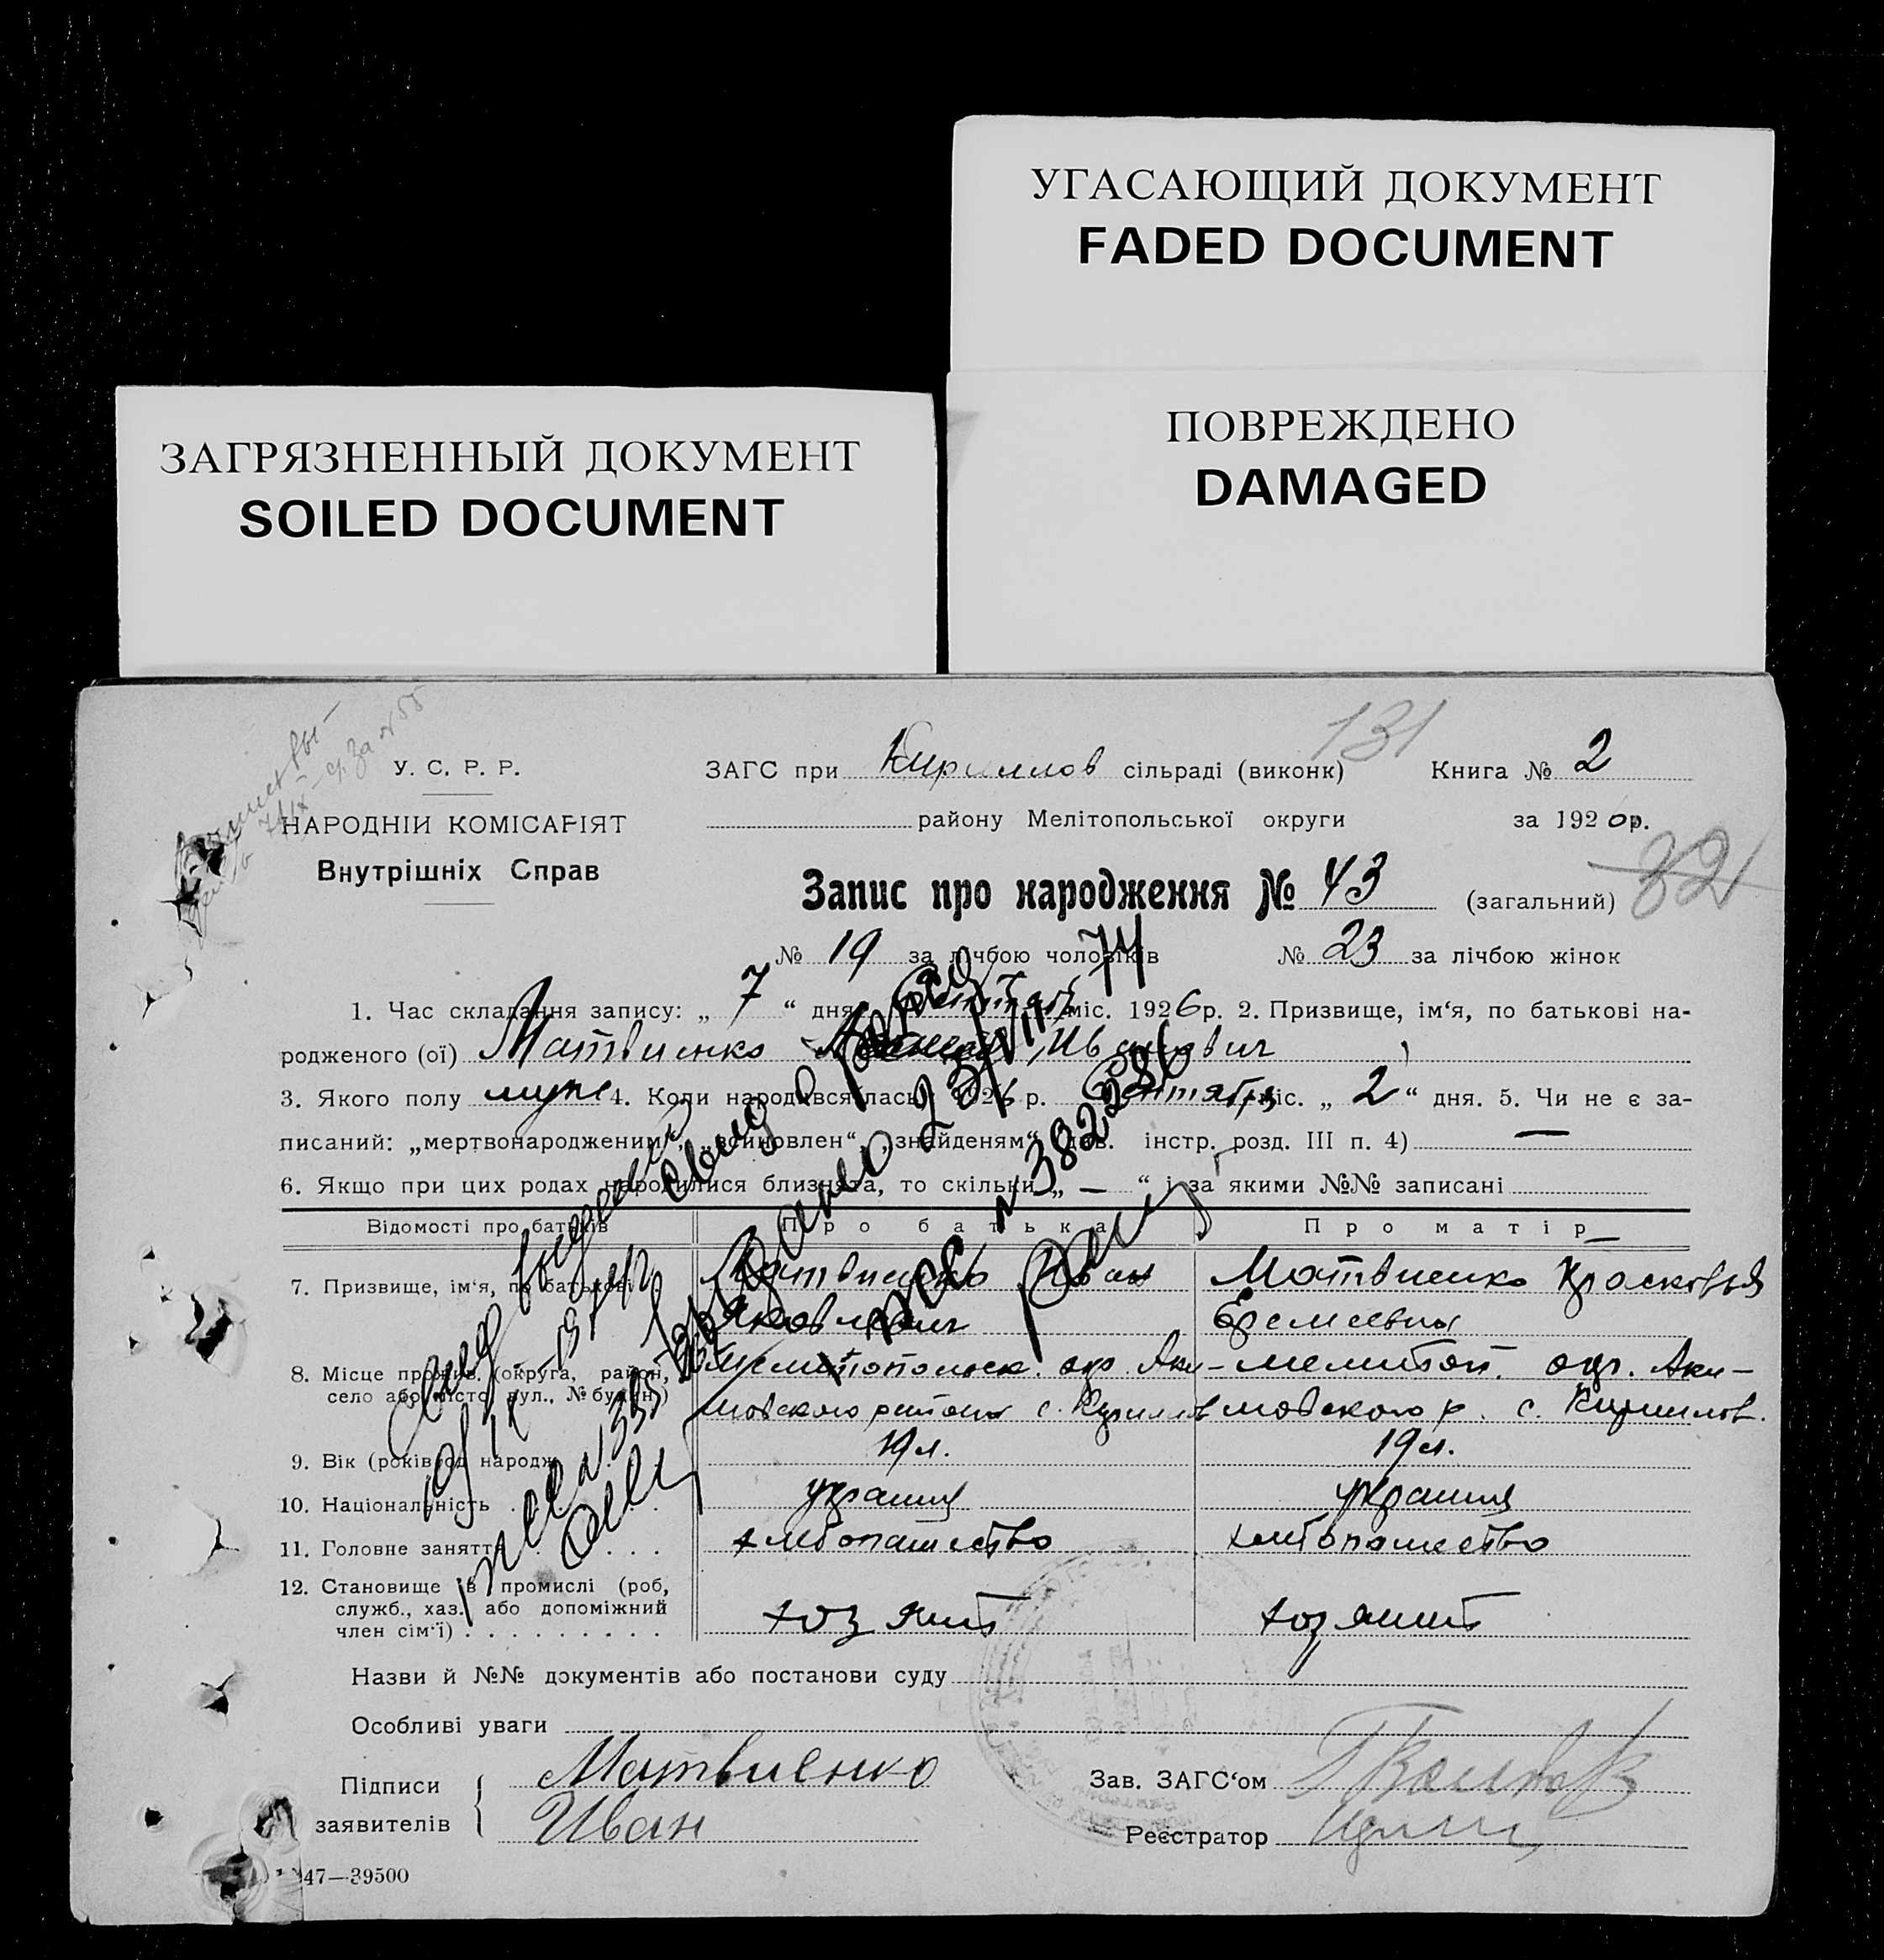 УГАСАЮЩИЙ ДОКУМЕНТ
FADED DOCUMENT
ПОВРЕЖДЕНО
DAMAGED
ЗАГРЯЗНЕННЫЙ ДОКУМЕНТ
SOILED DOCUMENT
131
У. С. Р. Р.
ЗАГС при Кириллов сільраді (виконк) Книга № 2
НАРОДНІЙ КОМІСАРІЯТ
району Мелітопольської округи за 1926р.
Внутрішніх Справ
Запис про народження № 43 (загальний) 32
№ 19 за лічбою чоловіків № 23 за лічбою жінок
1. Час складання запису: „ 7 “ дня міс. 1926р. 2. Призвище, ім‘я, по батькові на-
родженого (ої) Матвиенко Иванович
3. Якого полу муж 4. Коли народився(лась) 1926 р. Сентября міс. „ 2 “ дня. 5. Чи не є за-
писаний: „мертвонародженим“, „всиновлен“ „знайденям“ див. інстр. розд. III п. 4) —
6. Якщо при цих родах народилися близнята, то скільки „ — “ і за якими №№ записані
Відомості про батьків Про батька Про матір
7. Призвище, ім‘я, по батькові Матвиенко Иван Матвиенко Прасковья
Яковлевич Еремеевна
8. Місце прожив. (округа, район, Мелитопольск. окр. Аки- мелитоп. окр. Аки-
село або місто, вул., № будин.) мовского района с. Кирилов мовского р. с. Кирилов.
9. Вік (років од народж. 19 л. 19 л.
10. Національність украинц украинц
11. Головне заняття хлебопашество хлебопашество
12. Становище в промислі (роб,
служб., хаз. або допоміжний хозяин хозяин
член сім‘ї)
Назви й №№ документів або постанови суду
Особливі уваги
Підписи Матвиенко Зав. ЗАГС‘ом
заявителів Иван Реєстратор
47—39500